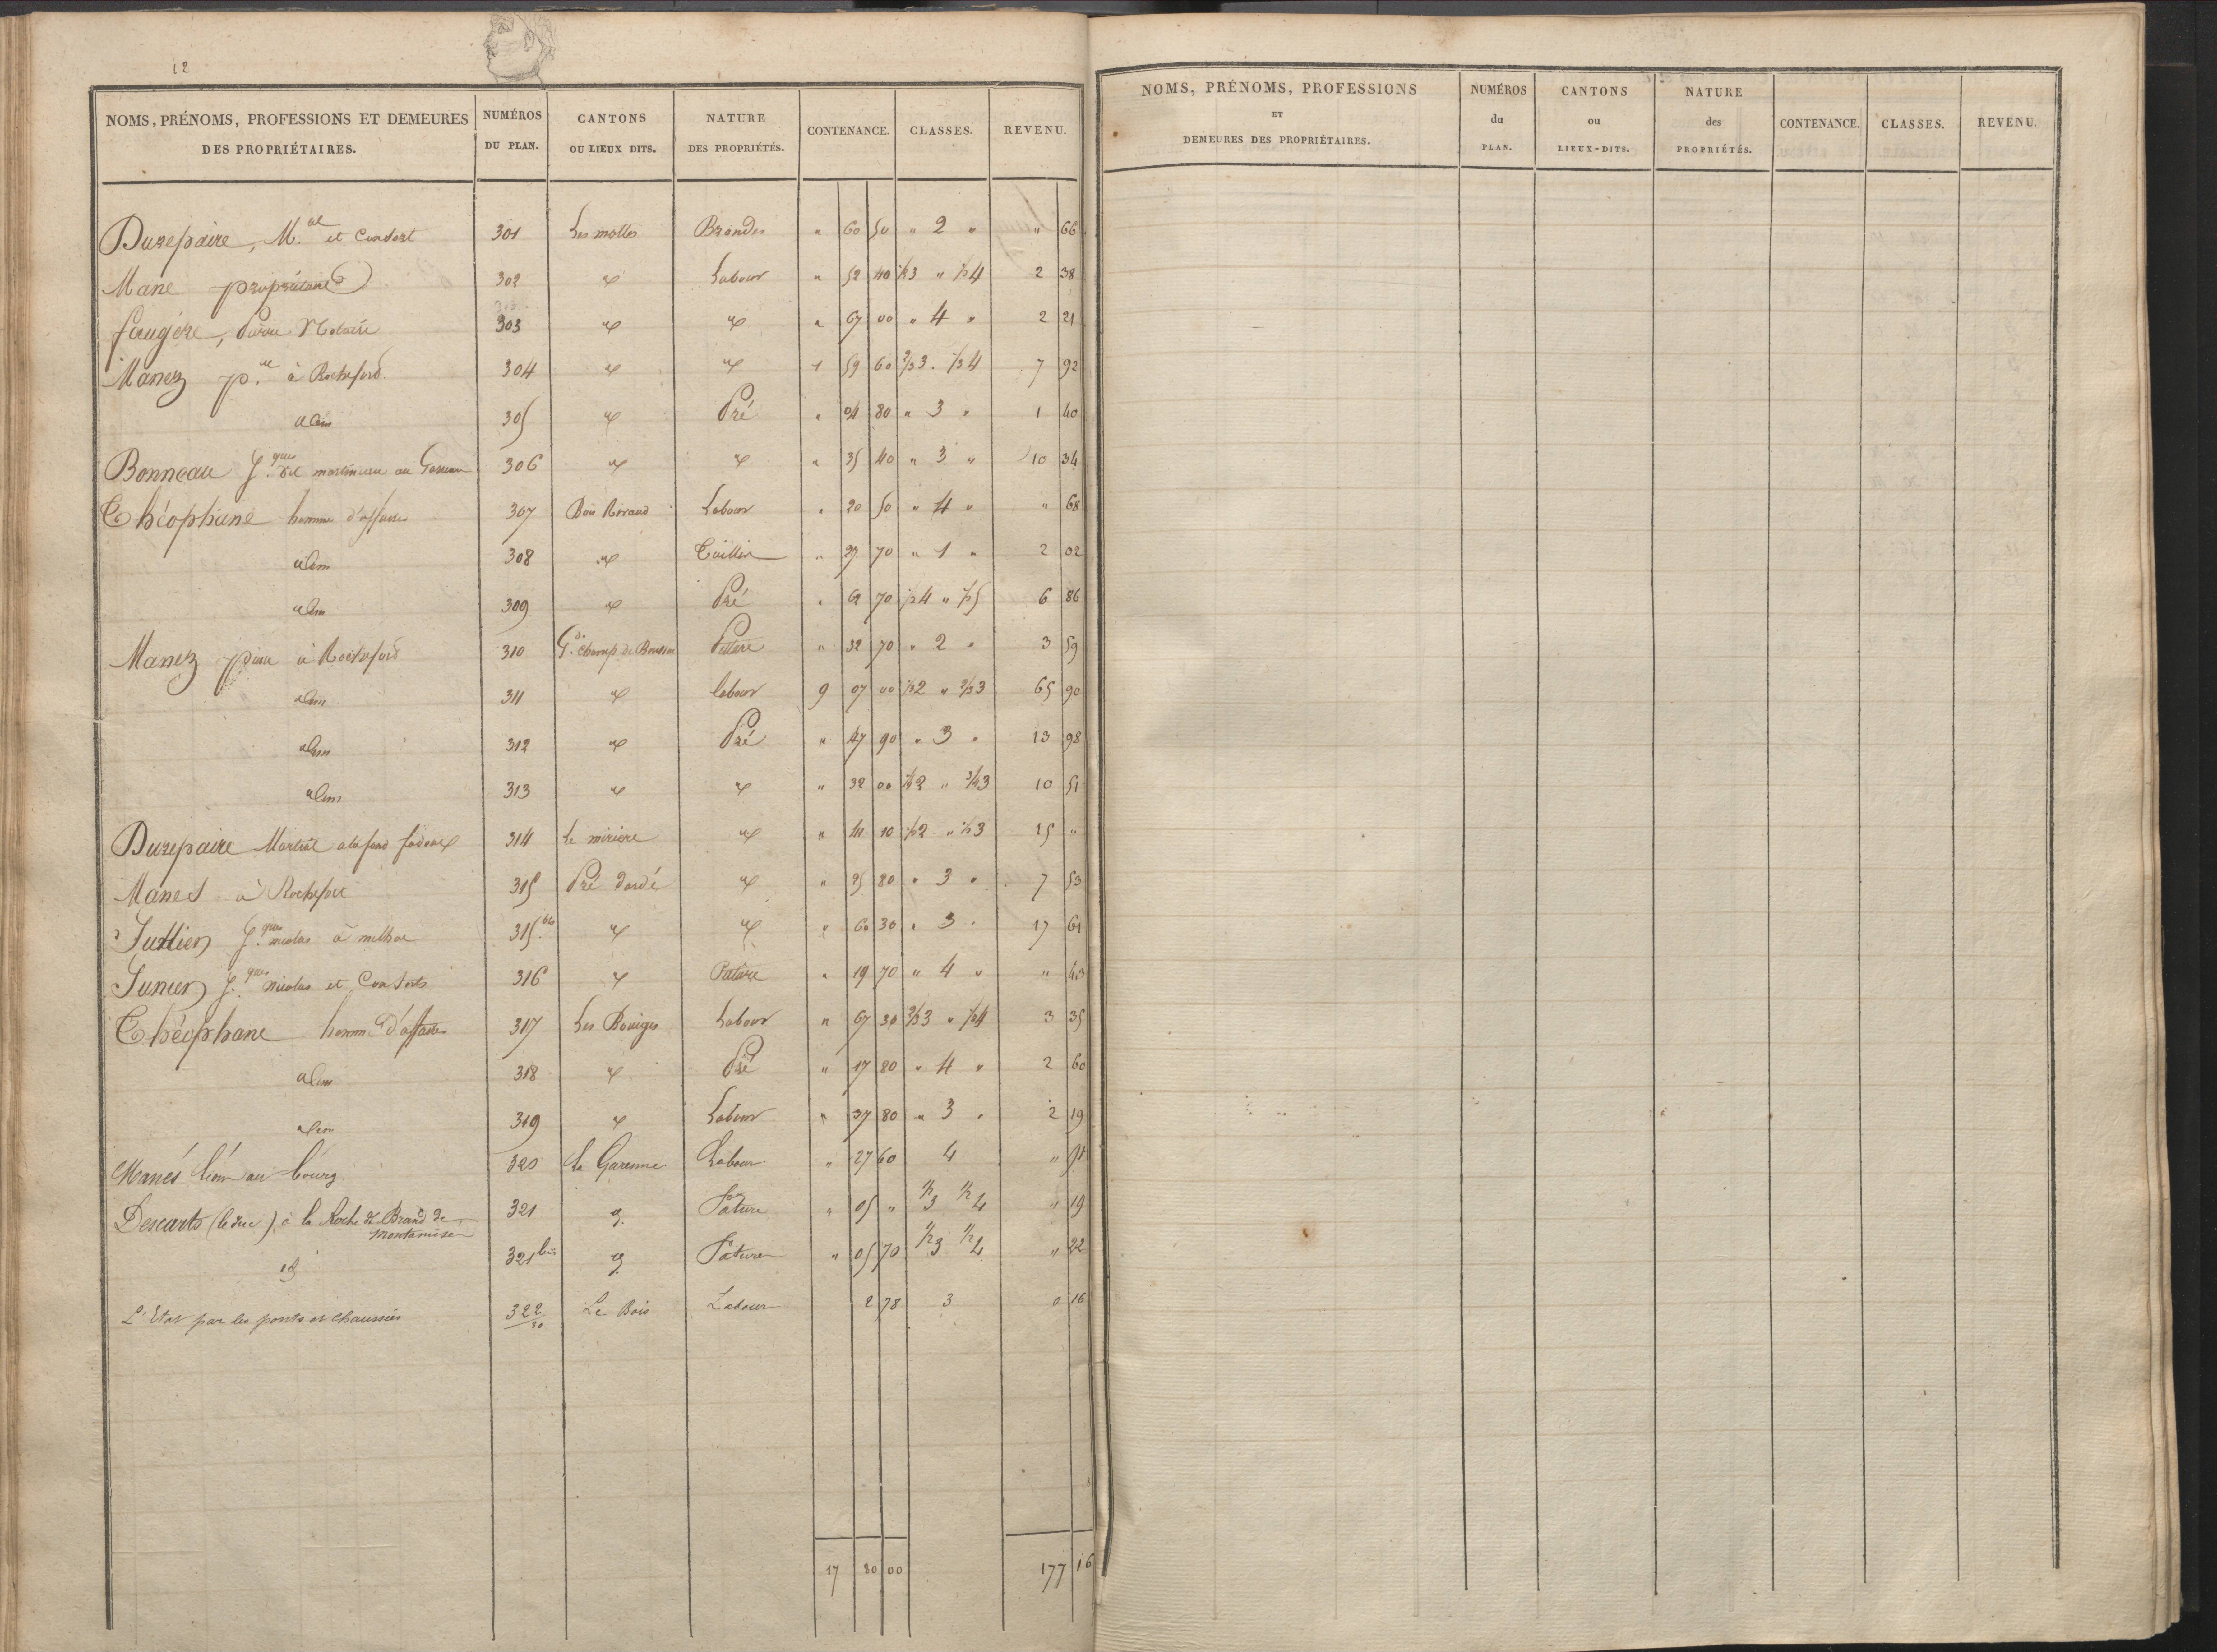 12
NOMS, PRÉNOMS, PROFESSIONS ET DEMEURES DES PROPRIÉTAIRES. NUMÉROS DU PLAN. CANTONS OU LIEUX DITS. NATURE DES PROPRIÉTÉS. CONTENANCE. CLASSES. REVENU.
Durepaire, M.al et Consort 301 Les mottes Brandes " 60 50 " 2 " " 66
Mane propriétaire 302 Labour " 52 40 1/2 3 " 1/2 4 2 38
faugère, Notaire 303 " 67 00 " 4 " 2 21
Manez p.re à Rocheford 304 1 59 60 2/3 3 . 1/3 4 7 92
idem 305 Pré " 04 80 " 3 " 1 40
Bonneau J.ques dit martineau au 306 " 35 40 " 3 " 10 34
Théophane homme d'affaires 307 Labour " 20 50 " 4 " " 68
idem 308 Taillis " 27 70 " 1 " 2 02
idem 309 Pré " 62 70 1/2 4 " 1/2 5 6 86
Manez à Rocheford 310 G.d champ de Pature " 32 70 " 2 " 3 59
idem 311 labour 9 07 00 1/3 2 " 2/3 3 65 90
idem 312 Pré " 47 90 " 3 " 13 98
idem 313 " 32 00 1/4 2 " 3/4 3 10 51
Durepaire Martial 314 Le " 41 10 1/2 2 " 1/2 3 15 "
Manes à Rochefort 315 Pré dardé " 25 80 " 3 " 7 53
Jullien J.ques nicolas à 315 bis " 60 30 " 3 " 17 61
J.ques nicolas et Consorts 316 Patûre " 19 70 " 4 " " 43
Théophane homme d'affaires 317 Les Rouiges Labour " 67 30 2/3 3 " 1/3 4 3 35
idem 318 Pré " 17 80 " 4 " 2 60
idem 319 Labour " 37 80 " 3 " 2 19
Manés léon au bourg 320 La Garenne Labour " 27 60 4 " 91
Descarts (le duc) à la Roche de Brand de Montamisé 321 d. Pature " 05 " 1/2 3 1/2 4 " 19
id 321 bis d. Pature " 05 70 1/2 3 1/2 4 " 22
L'Etat par les ponts et chaussées 322/30 Le Bois Labour 2 78 3 0 16
17 80 00 177 16
NOMS, PRÉNOMS, PROFESSIONS ET DEMEURES DES PROPRIÉTAIRES. NUMÉROS du PLAN. CANTONS ou LIEUX-DITS. NATURE des PROPRIÉTÉS. CONTENANCE. CLASSES. REVENU.